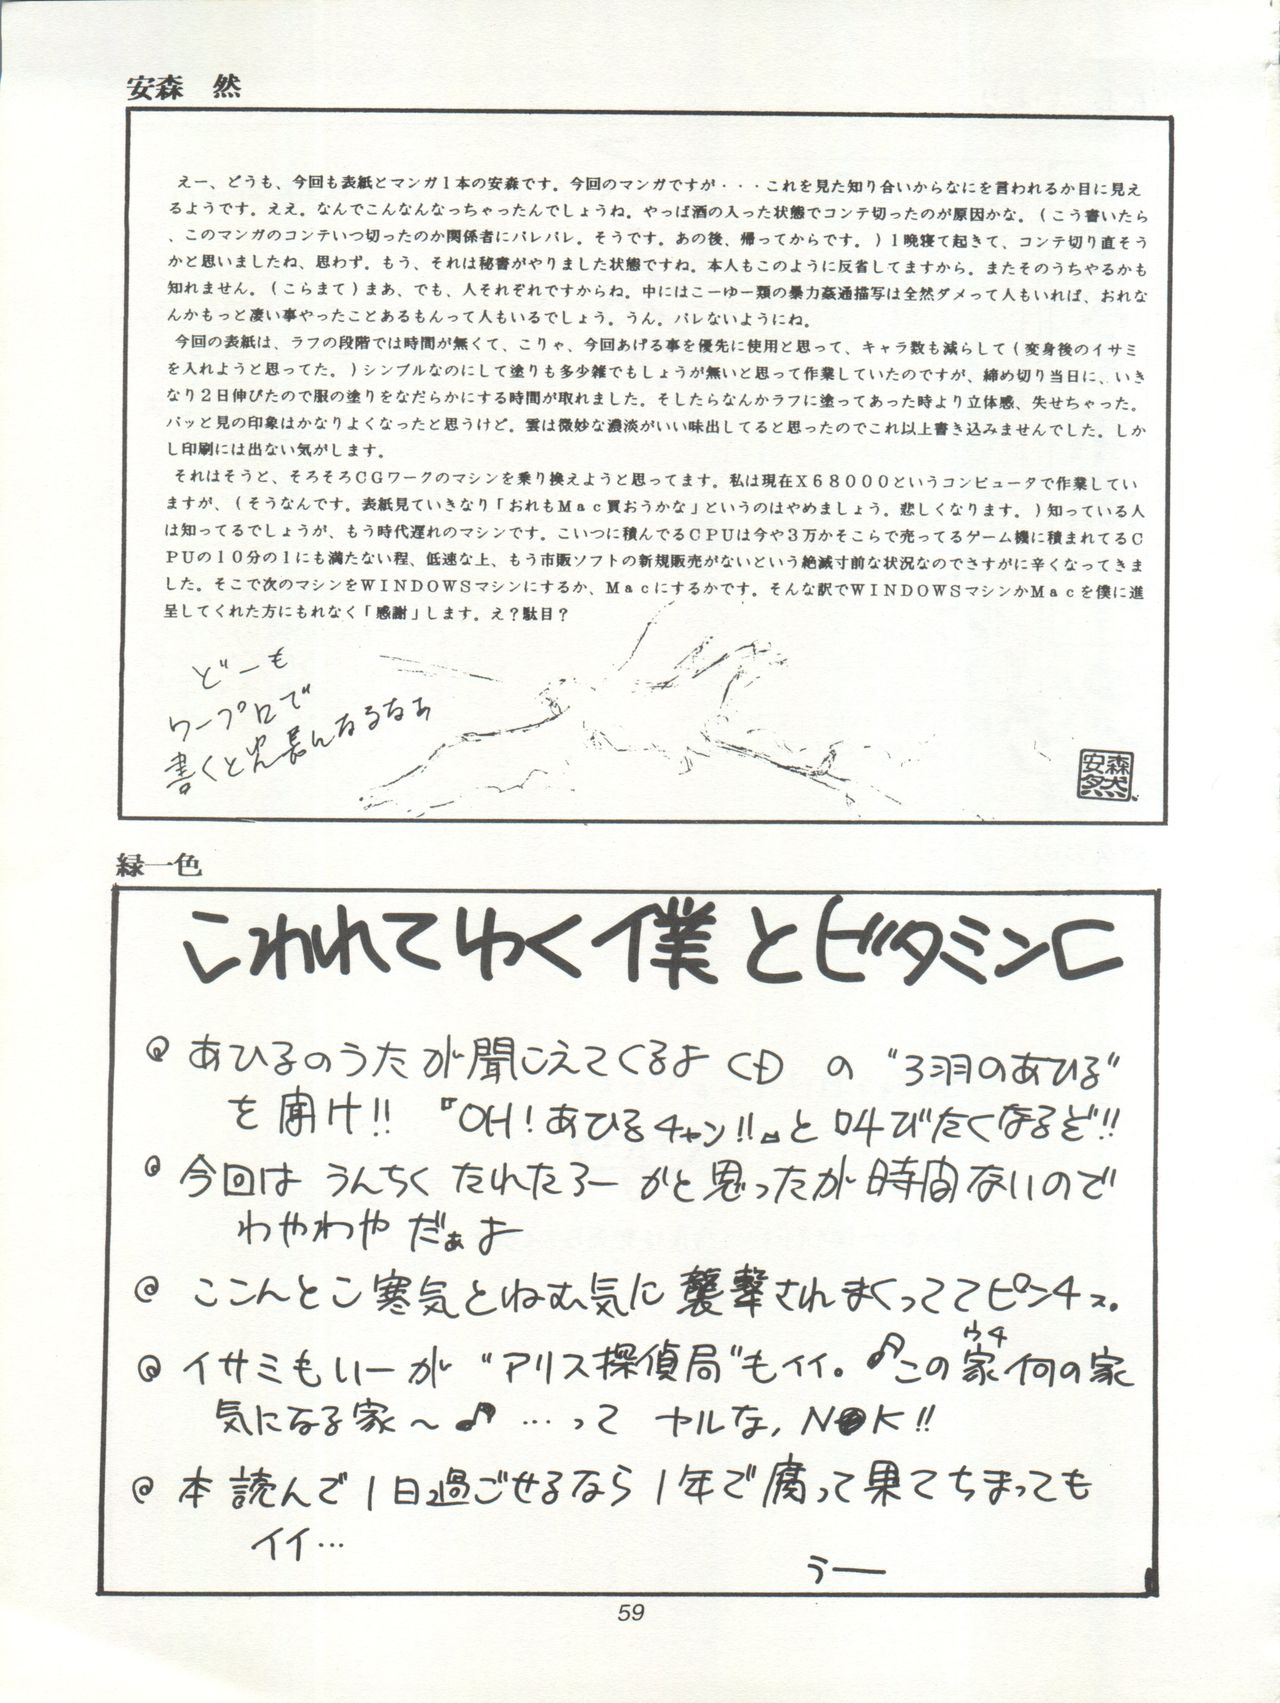 安森　然
えー、どうも、今回も表紙とマンガ１本の安森です。今回のマンガですが・・・これを見た知り合いからなにを言われるか目に見え
るようです。ええ。なんでこんなんなっちゃったんでしょうね。やっぱ酒の入った状態でコンテ切ったのが原因かな。（こう書いたら
、このマンガのコンテいつ切ったのか関係者にバレバレ。そうです。あの後、帰ってからです。）１晩寝て起きて、コンテ切り直そう
かと思いましたね、思わず。もう、それは秘書がやりました状態ですね。本人もこのように反省してますから。またそのうちやるかも
知れません。（こらまて）まあ、でも、人それぞれですからね。中にはこーゆー類の暴力姦通描写は全然ダメって人もいれば、おれな
んかもっと凄い事やったことあるもんって人もいるでしょう。うん。バレないようにね。
今回の表紙は、ラフの段階では時間が無くて、こりゃ、今回あげる事を優先に使用と思って、キャラ数も減らして（変身後のイサミ
を入れようと思ってた。）シンブルなのにして塗りも多少雑でもしょうが無いと思って作業していたのですが、締め切り当日に、いき
なり２日伸びたので服の塗りをなだらかにする時間が取れました。そしたらなんかラフに塗ってあった時より立体感、失せちゃった。
パッと見の印象はかなりよくなったと思うけど。雲は微妙な濃淡がいい味出してると思ったのでこれ以上書き込みませんでした。しか
し印刷には出ない気がします。
それはそうと、そろそろＣＧワークのマシンを乗り換えようと思ってます。私は現在Ｘ６８０００というコンピュータで作業してい
ますが、（そうなんです。表紙見ていきなり「おれもＭａｃ買おうかな」というのはやめましょう。悲しくなります。）知っている人
は知ってるでしょうが、もう時代遅れのマシンです。こいつに積んでるＣＰＵは今や３万かそこらで売ってるゲーム機に積まれてるＣ
ＰＵの１０分の１にも満たない程、低速な上、もう市販ソフトの新規販売がないという絶滅寸前な状況なのでさすがに辛くなってきま
した。そこで次のマシンをＷＩＮＤＯＷＳマシンにするか、Ｍａｃにするかです。そんな訳でＷＩＮＤＯＷＳマシンかＭａｃを僕に進
呈してくれた方にもれなく「感謝」します。え？駄目？
どーも
ワープロで
書くと文長んなるなぁ
安森然
緑一色
こわれてゆく僕とビタミンC
あひるのうたが聞こえてくるよ CD の “3羽のあひる”
を聞け!! 『OH！あひるチャン!!』と叫びたくなるぞ!!
今回は うんちくたれたろーかと思ったが時間ないので
わやわやだぁよ
ここんとこ寒気とねむ気に襲撃されまくっててピンチっス。
イサミもいーが “アリス探偵局”もイイ。♪この家(ウチ)何の家
気になる家～♪ …って ヤルな, N●K!!
本読んで1日過ごせるなら1年で腐って果てちまっても
イイ…
うー
59